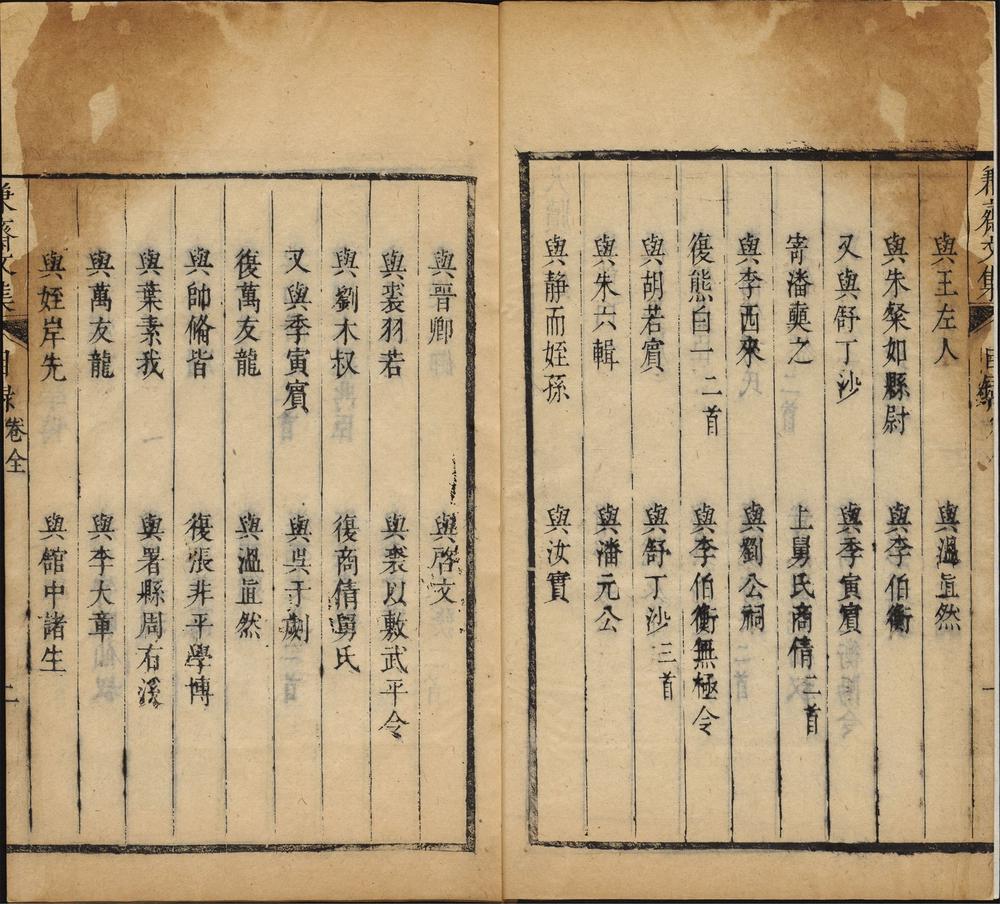 兼齋文集 目錄 一
與王左人 與溫直然
與朱榮如縣尉 與李伯衡
又與舒丁沙 與季寅賓
寄潘萸之 上舅氏商倩二首
與李西來 與劉公祠
復熊白一二首 與李伯衡無極令
與胡若賓 與舒丁沙三首
與朱六輯 與潘元公
與靜而姪孫 與汝實
與晉卿 與啓文
與裘羽若 與裘以敷武平令
與劉木叔 復商倩舅氏
又與季寅賓 與吳于
復萬友龍 與溫直然
與帥脩皆 復張非平學博
與葉素我 與署縣周右溪
與萬友龍 與李大章
與姪岸先 與館中諸生
兼齋文集 目錄 卷全 二